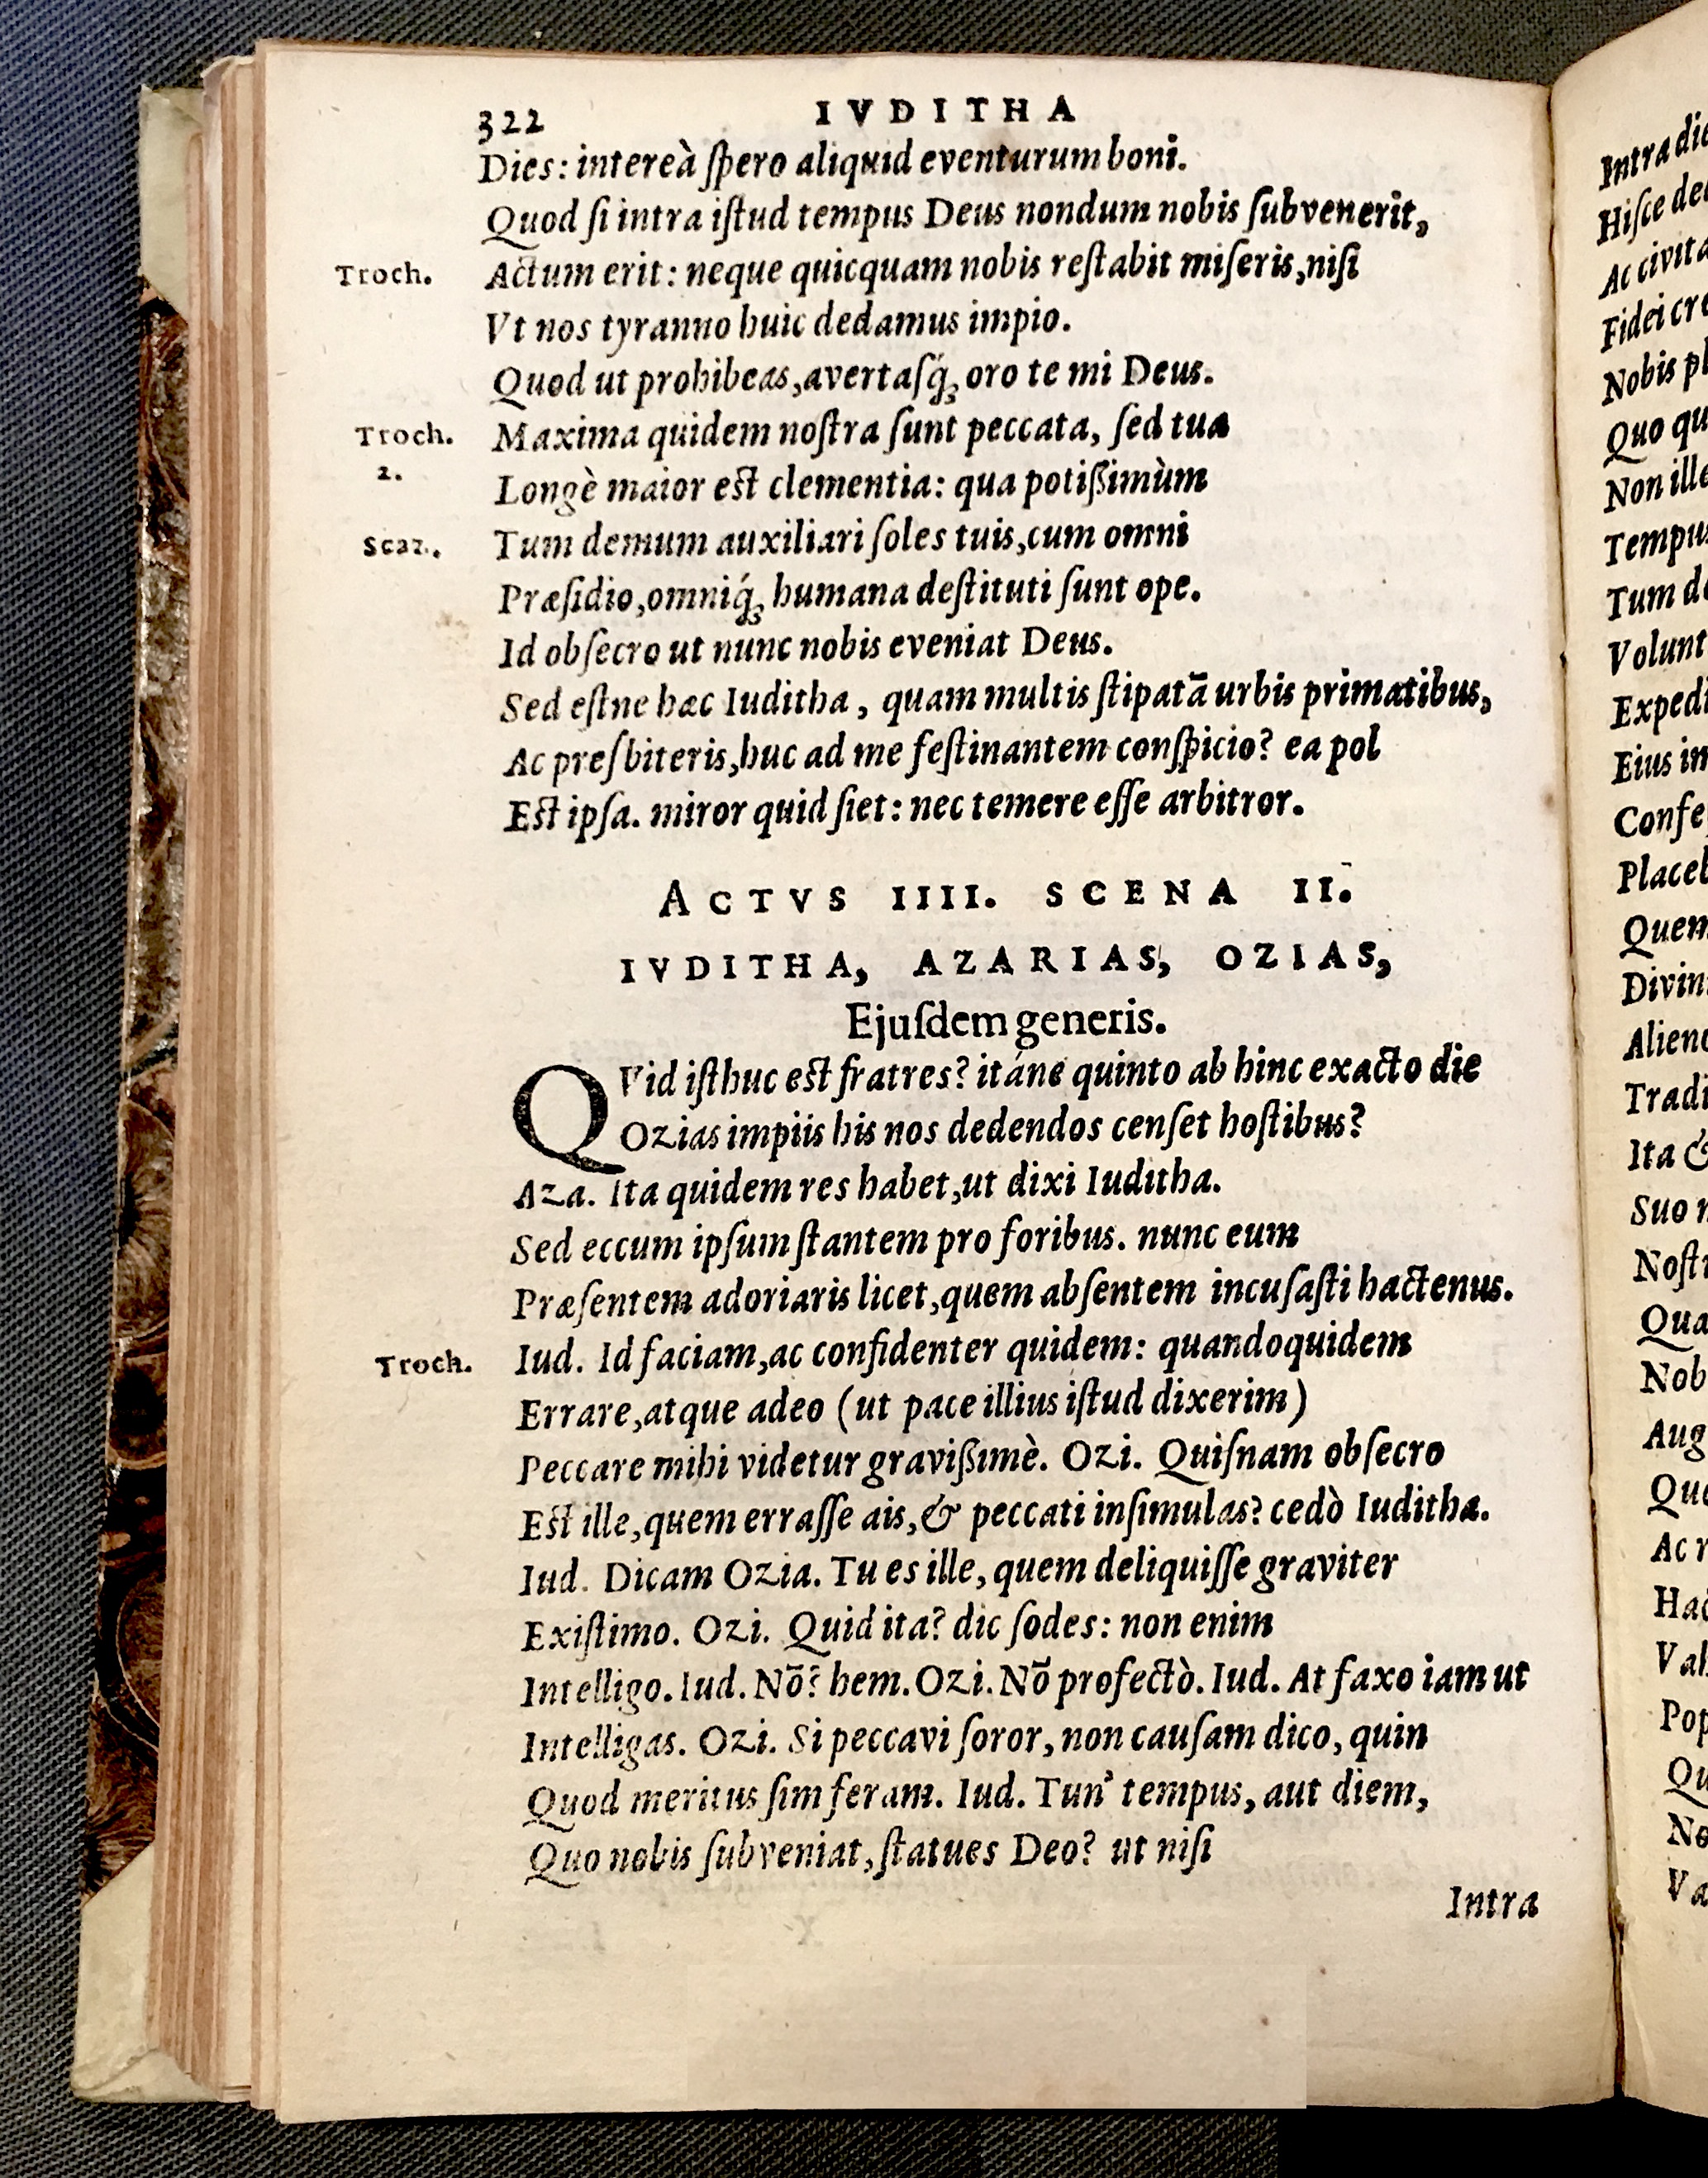 322 IVDITHA
Dies: intereà ſpero aliquid eventurum boni.
Quod ſi intra iſtud tempus Deus nondum nobis ſubvenerit,
Troch. Actum erit: neque quicquam nobis reſtabit miſeris, niſi
Vt nos tyranno huic dedamus impio.
Quod ut prohibeas, avertaſq́; oro te mi Deus.
Troch. 2. Maxima quidem noſtra ſunt peccata, ſed tua
Longè maior eſt clementia: qua potiſſimùm
Scaz. Tum demum auxiliari ſoles tuis, cum omni
Præſidio, omniq́; humana deſtituti ſunt ope.
Id obſecro ut nunc nobis eveniat Deus.
Sed eſtne hæc Iuditha, quam multis ſtipatā urbis primatibus,
Ac preſbiteris, huc ad me feſtinantem conſpicio? ea pol
Eſt ipſa. miror quid ſiet: nec temere eſſe arbitror.
ACTVS IIII. SCENA II.
IVDITHA, AZARIAS, OZIAS,
Ejuſdem generis.
QVid iſthuc eſt fratres? itáne quinto ab hinc exacto die
Ozias impiis his nos dedendos cenſet hoſtibus?
Aza. Ita quidem res habet, ut dixi Iuditha.
Sed eccum ipſum ſtantem pro foribus. nunc eum
Præſentem adoriaris licet, quem abſentem incuſaſti hactenus.
Troch. Iud. Id faciam, ac confidenter quidem: quandoquidem
Errare, atque adeo (ut pace illius iſtud dixerim)
Peccare mihi videtur graviſſimè. Ozi. Quiſnam obſecro
Eſt ille, quem erraſſe ais, & peccati inſimulas? cedò Iuditha.
Iud. Dicam Ozia. Tu es ille, quem deliquiſſe graviter
Exiſtimo. Ozi. Quid ita? dic ſodes: non enim
Intelligo. Iud. Nō? hem. Ozi. Nō profectò. Iud. At faxo iam ut
Intelligas. Ozi. Si peccavi ſoror, non cauſam dico, quin
Quod meritus ſim feram. Iud. Tun' tempus, aut diem,
Quo nobis ſubveniat, ſtatues Deo? ut niſi
Intra
Intra
Hiſce
Ac
Fidei
Nobis
Quo
Non
Tum
Eius
Ita &
Suo